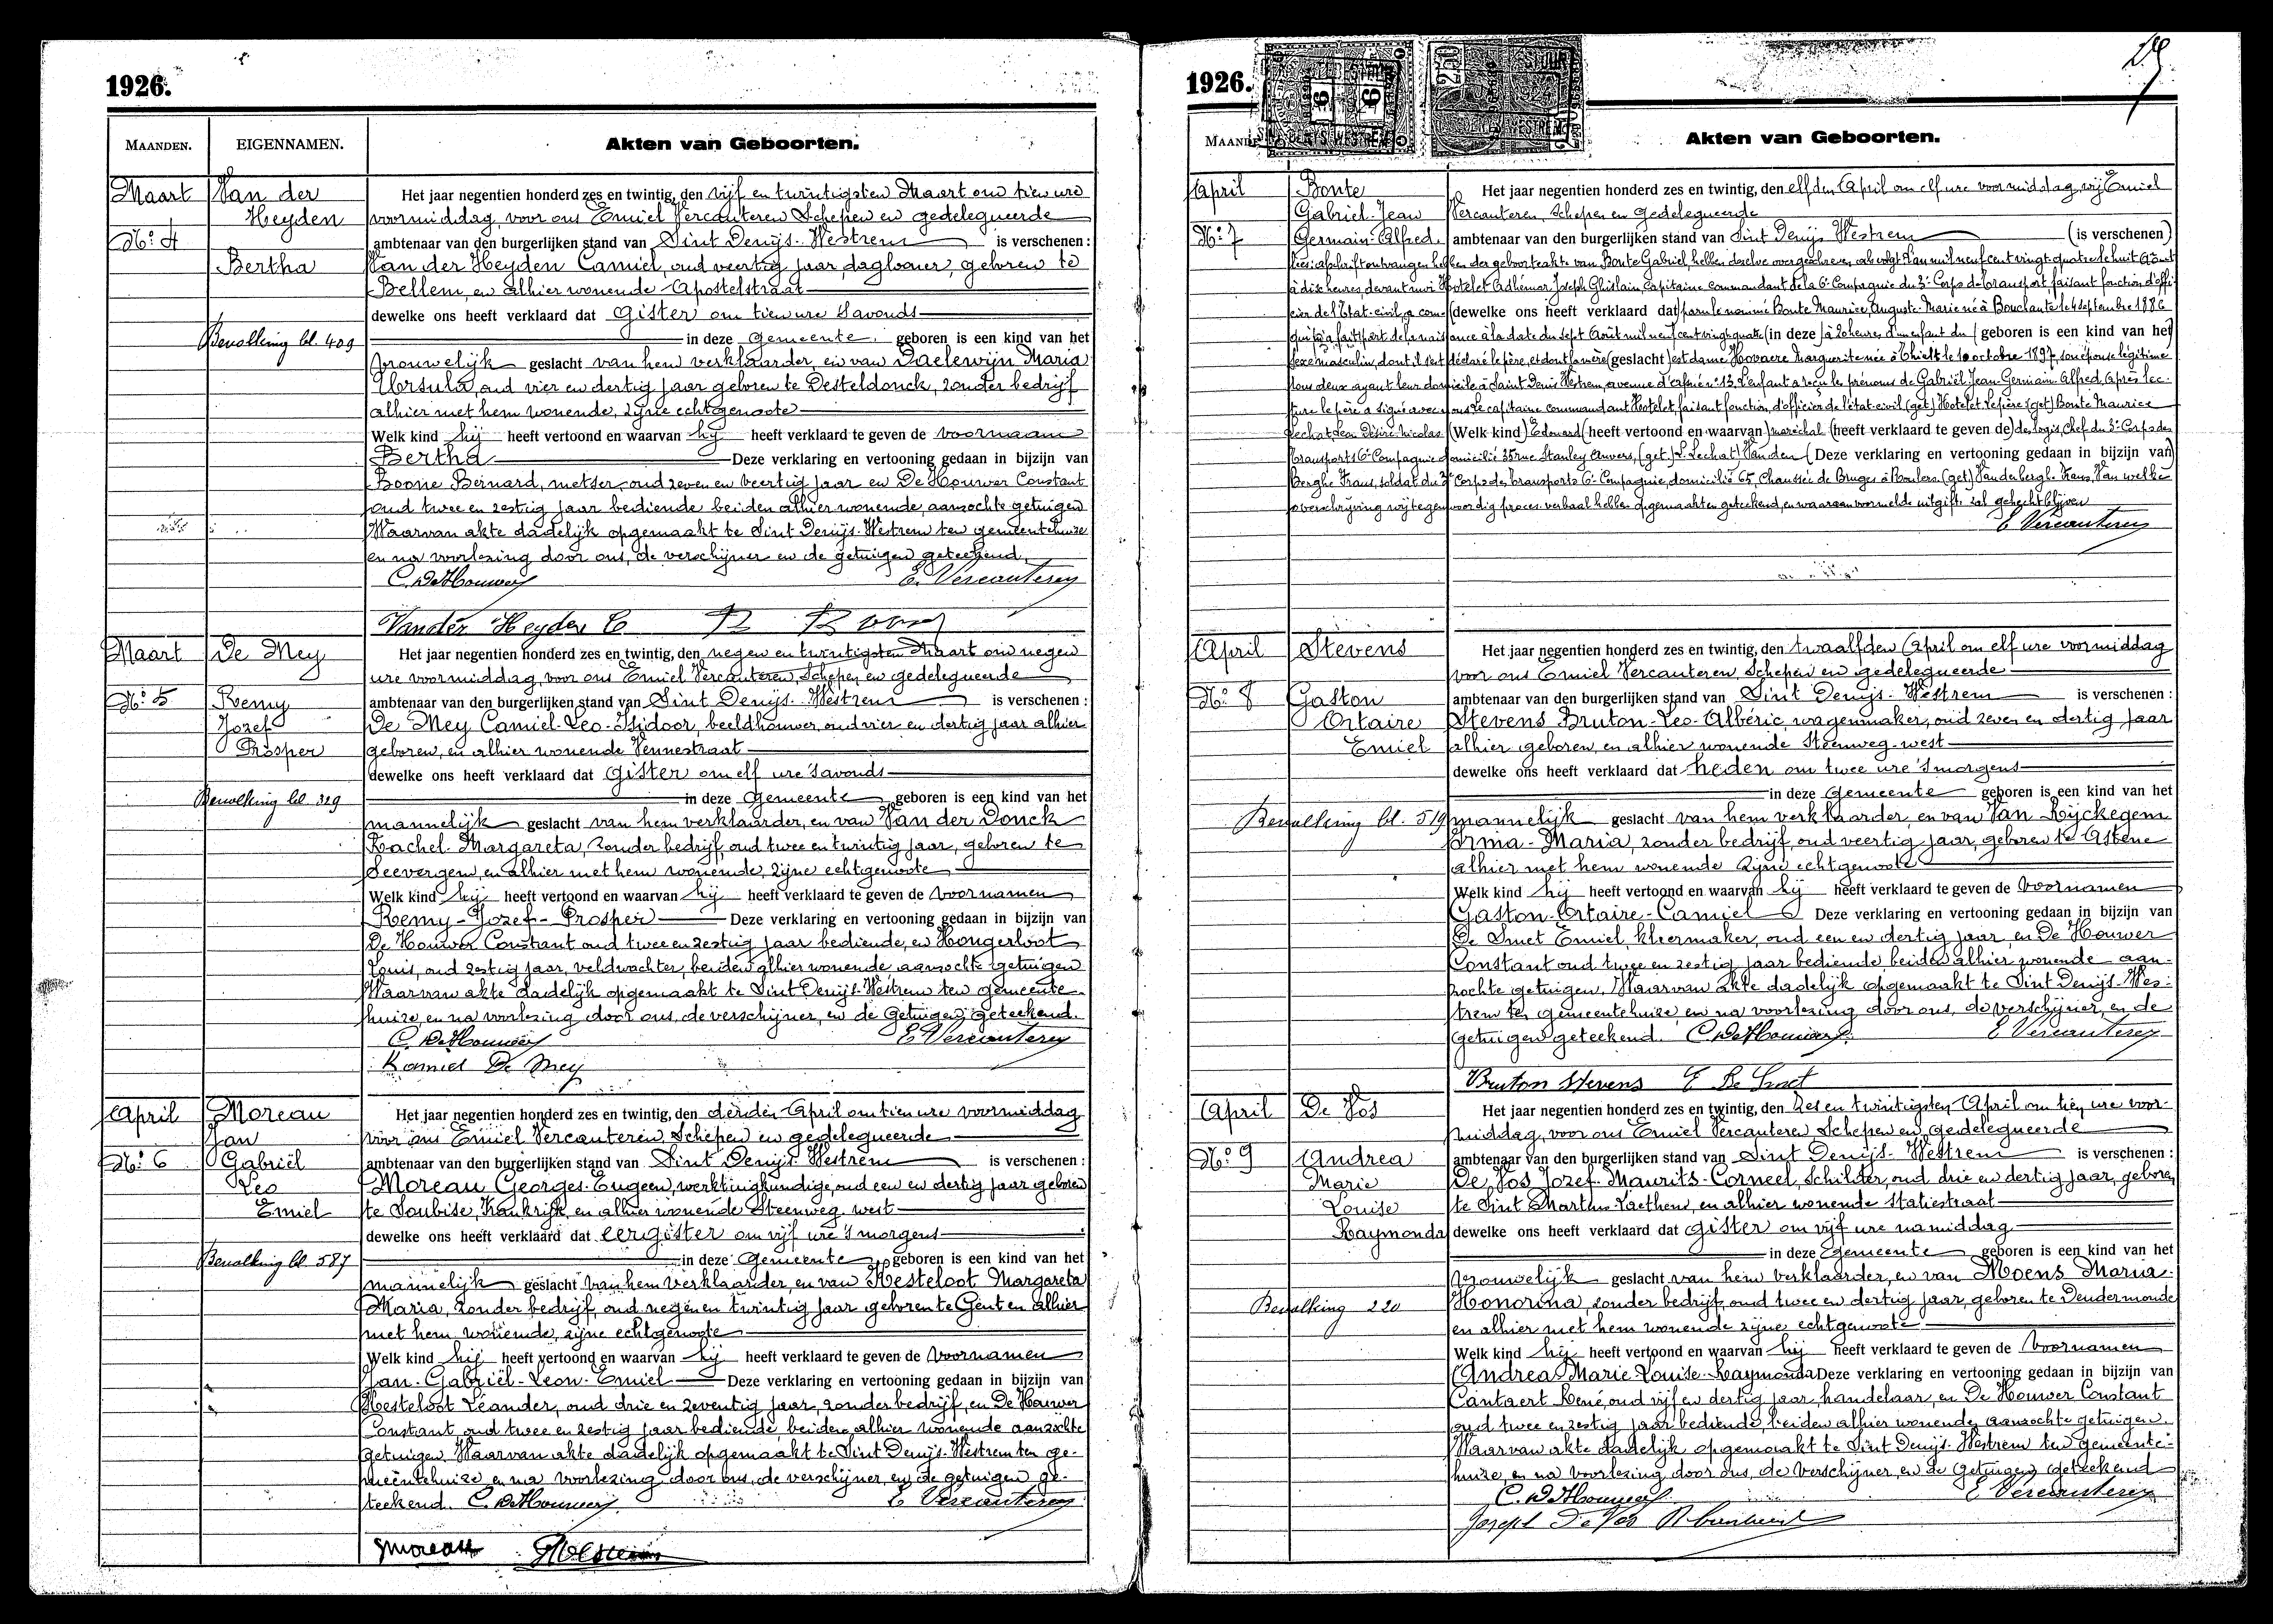 1926.
MAANDEN. EIGENNAMEN. Akten van Geboorten.
Maart Van der Heyden
N° 4
Bertha
Bevolking bl. 409
Het jaar negentien honderd zes en twintig, den vijf en twintigsten Maart om tien ure
voormiddag, voor ons Emiel Vercauteren Schepen en gedelegueerde
ambtenaar van den burgerlijken stand van Sint Denijs-Westrem is verschenen:
Van der Heyden Camiel, oud veertig jaar, daglooner, geboren te
Bellem, en alhier wonende Apostelstraat
dewelke ons heeft verklaard dat gister om tien ure s'avonds
in deze gemeente geboren is een kind van het
vrouwelijk geslacht van hem verklaarder, en van Daelewijn Maria
Ursula, oud vier en dertig jaar geboren te Desteldonck, zonder bedrijf
alhier met hem wonende, zijne echtgenoote
Welk kind hij heeft vertoond en waarvan hij heeft verklaard te geven de voornaam
Bertha Deze verklaring en vertooning gedaan in bijzijn van
Boone Bernard, metser, oud zeven en veertig jaar en De Houwer Constant
oud twee en zestig jaar bediende beiden alhier wonende, aanzochte getuigen
Waarvan akte dadelijk opgemaakt te Sint Denijs-Westrem ten gemeentehuize
en na voorlezing door ons, de verschijner en de getuigen geteekend.
C. De Houwer E. Vercauteren
Vander Heyden C
Maart De Mey
N° 5 Remy
Jozef
Prosper
Bevolking bl. 329
Het jaar negentien honderd zes en twintig, den negen en twintigsten Maart om negen
ure voormiddag, voor ons Emiel Vercauteren, Schepen en gedelegueerde
ambtenaar van den burgerlijken stand van Sint Denijs-Westrem is verschenen:
De Mey Camiel-Leo-Isidoor, beeldhouwer, oud vier en dertig jaar alhier
geboren, en alhier wonende Vennestraat
dewelke ons heeft verklaard dat gister om elf ure s'avonds
in deze gemeente geboren is een kind van het
mannelijk geslacht van hem verklaarder, en van Van der Donck
Rachel-Margareta, zonder bedrijf, oud twee en twintig jaar, geboren te
Seevergem, en alhier met hem wonende, zijne echtgenoote
Welk kind hij heeft vertoond en waarvan hij heeft verklaard te geven de voornamen
Remy-Jozef-Prosper Deze verklaring en vertooning gedaan in bijzijn van
De Houwer Constant oud twee en zestig jaar bediende, en Hongerloot
Louis, oud zestig jaar, veldwachter, beiden alhier wonende, aanzochte getuigen
Waarvan akte dadelijk opgemaakt te Sint Denijs-Westrem ten gemeente-
huize, en na voorlezing door ons, de verschijner, en de getuigen geteekend.
C. De Houwer E. Vercauteren
Kamiel De Mey
April Moreau
Jan
N° 6 Gabriël
Leo
Emiel
Bevolking bl 587
Het jaar negentien honderd zes en twintig, den derden April om tien ure voormiddag
voor ons Emiel Vercauteren, Schepen en gedelegueerde
ambtenaar van den burgerlijken stand van Sint Denijs-Westrem is verschenen:
Moreau Georges-Eugeen, werktuigkundige, oud een en dertig jaar geboren
te Soubise, Frankrijk, en alhier wonende Steenweg-west
dewelke ons heeft verklaard dat eergister om vijf ure s'morgens
in deze gemeente geboren is een kind van het
mannelijk geslacht van hem verklaarder, en van Kesteloot Margareta
Maria, zonder bedrijf, oud negen en twintig jaar geboren te Gent en alhier
met hem wonende, zijne echtgenoote
Welk kind hij heeft vertoond en waarvan hij heeft verklaard te geven de voornamen
Jan-Gabriël-Leon-Emiel Deze verklaring en vertooning gedaan in bijzijn van
Kesteloot Léander, oud drie en zeventig jaar, zonder bedrijf, en De Houwer
Constant oud twee en zestig jaar bediende, beiden alhier wonende aanzochte
getuigen. Waarvan akte dadelijk opgemaakt te Sint Denijs-Westrem ten ge-
meentehuize, en na voorlezing door ons, de verschijner, en de getuigen ge-
teekend. C. De Houwer E. Vercauteren
Moreau
1926.
Akten van Geboorten.
April Bonte
Gabriel-Jean
N° 7 Germain-Alfred.
Het jaar negentien honderd zes en twintig, den elfden April om elf ure voormiddag wij Emiel
Vercauteren, Schepen en gedelegueerde
ambtenaar van den burgerlijken stand van Sint Denijs Westrem (is verschenen)
ontvangen hebben der geboorteakte van Bonte Gabriel, hebben dezelve overgeschreven als volgt L'an mil neuf cent vingt-quatre le huit Août
à dix heures, devant moi Hotelet Adhémar Joseph Ghislain, Capitaine commandant de la 6e Compagnie du 3e Corps de transport faisant fonction d'offi-
cier de l'Etat-civil, a com- (dewelke ons heeft verklaard dat) paru le nommé Bonte Maurice, Auguste-Marie né à Bouchaute le 4 septembre 1886
qui m'a fait part de la naissance à la date du sept Août mil neuf cent vingt-quatre (in deze) à 20 heures, d'un enfant du (geboren is een kind van het)
sexe masculin, dont il s'est déclaré le père, et dont la mère (geslacht) est dame Hovaere Marguerite née à Thielt le 10 octobre 1897, son épouse légitime
tous deux ayant leur domicile à Saint Denis Westrem, avenue d'Afsné n° 13. L'enfant a reçu les prénoms de Gabriël-Jean-Germain-Alfred, Après lec-
ture le père a signé avec nous Le capitaine commandant Hotelet, faisant fonction d'officier de l'état-civil (get) Hotelet Le père (get) Bonte Maurice
Lechat Léon Désiré-Nicolas (Welk kind) Edouard (heeft vertoond en waarvan) maréchal (heeft verklaard te geven de) des logis, Chef du 3e Corps des
transports 6e Compagnie domicilié 35 rue Stanley Anvers, (get) L. Lechat Van den (Deze verklaring en vertooning gedaan in bijzijn van)
Berghe Frans, soldat du 3e Corps des transports 6e Compagnie, domicilié 65 Chaussée de Bruges à Roulers (get) Vandenbergh. Frans, Van welke
overschrijving wij tegenwoordig proces-verbaal hebben opgemaakt en geteekend, en waaraan voormelde uitgifte zal gehecht blijven
E. Vercauteren
April Stevens
N° 8 Gaston
Ortaire
Emiel
Bevolking bl. 519
Het jaar negentien honderd zes en twintig, den twaalfden April om elf ure voormiddag
voor ons Emiel Vercauteren, Schepen en gedelegueerde
ambtenaar van den burgerlijken stand van Sint Denijs-Westrem is verschenen:
Stevens Bruton-Leo-Albéric, wagenmaker, oud zeven en dertig jaar
alhier geboren, en alhier wonende Steenweg-west
dewelke ons heeft verklaard dat heden om twee ure s'morgens
in deze gemeente geboren is een kind van het
mannelijk geslacht van hem verklaarder, en van Van Rijckegem
Irma-Maria, zonder bedrijf, oud veertig jaar, geboren te Astene
alhier met hem wonende zijne echtgenoote
Welk kind hij heeft vertoond en waarvan hij heeft verklaard te geven de voornamen
Gaston-Ortaire-Camiel Deze verklaring en vertooning gedaan in bijzijn van
De Smet Emiel, kleermaker, oud een en dertig jaar, en De Houwer
Constant oud twee en zestig jaar bediende beiden alhier wonende aan-
zochte getuigen. Waarvan akte dadelijk opgemaakt te Sint Denijs-Wes-
trem ten gemeentehuize, en na voorlezing door ons, de verschijner, en de
getuigen geteekend. C. De Houwer E. Vercauteren
Bruton Stevens E De Smet
April De Vos
N° 9 Andrea
Marie
Louise
Raymonda
Bevolking 220
Het jaar negentien honderd zes en twintig, den zes en twintigsten April om tien ure voor-
middag, voor ons Emiel Vercauteren Schepen en gedelegueerde
ambtenaar van den burgerlijken stand van Sint Denijs-Westrem is verschenen:
De Vos Jozef-Maurits-Corneel, Schilder, oud drie en dertig jaar, geboren
te Sint Martens-Laethem, en alhier wonende statiestraat
dewelke ons heeft verklaard dat gister om vijf ure namiddag
in deze gemeente geboren is een kind van het
vrouwelijk geslacht van hem verklaarder, en van Moens Maria-
Honorina, zonder bedrijf, oud twee en dertig jaar, geboren te Dendermonde
en alhier met hem wonende zijne echtgenoote
Welk kind hij heeft vertoond en waarvan hij heeft verklaard te geven de voornamen
Andrea-Marie-Louise-Raymonda Deze verklaring en vertooning gedaan in bijzijn van
Cantaert René, oud vijf en dertig jaar, handelaar, en De Houwer Constant
oud twee en zestig jaar bediende, beiden alhier wonende, aanzochte getuigen.
Waarvan akte dadelijk opgemaakt te Sint Denijs-Westrem ten gemeente-
huize, en na voorlezing door ons, de verschijner, en de getuigen geteekend
C. De Houwer E. Vercauteren
Joseph De Vos